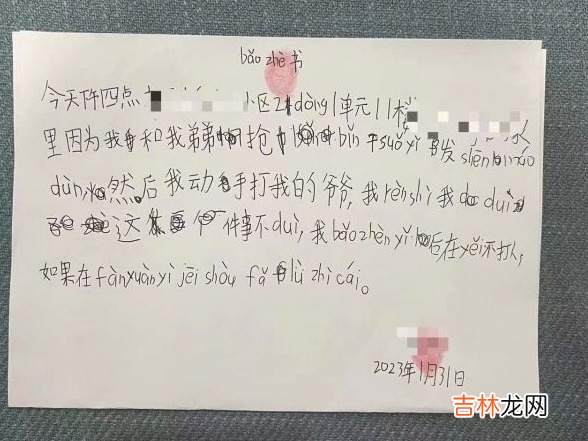 bǎo zhè书
今天下午四点 小区2dòng1单元11楼
里因为我和我弟抢bǐn干suǒyǐ发shēn
dùn然后我动手打我的爷爷,我rènshì我duì
这件事不duì,我bǎozhènyǐ后在yěi不打人,
如果在fànyuànyìjēishòu fǎlǜzhìcái。
2023年1月31日
吉林龙网